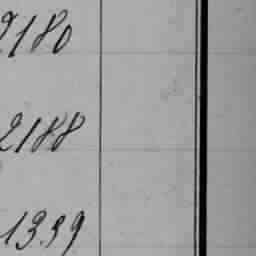 2180
2188
1339